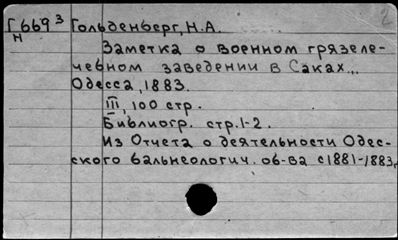 Г669³ Гольденберг, Н.А.
Н
Заметка о военном грязеле-
чебном заведении в Саках...
Одесса, 1883.
III, 100 стр.
Библиогр. стр. 1-2.
Из Отчета о деятельности Одес-
ского бальнеологич. об-ва с 1881-1883г.
2